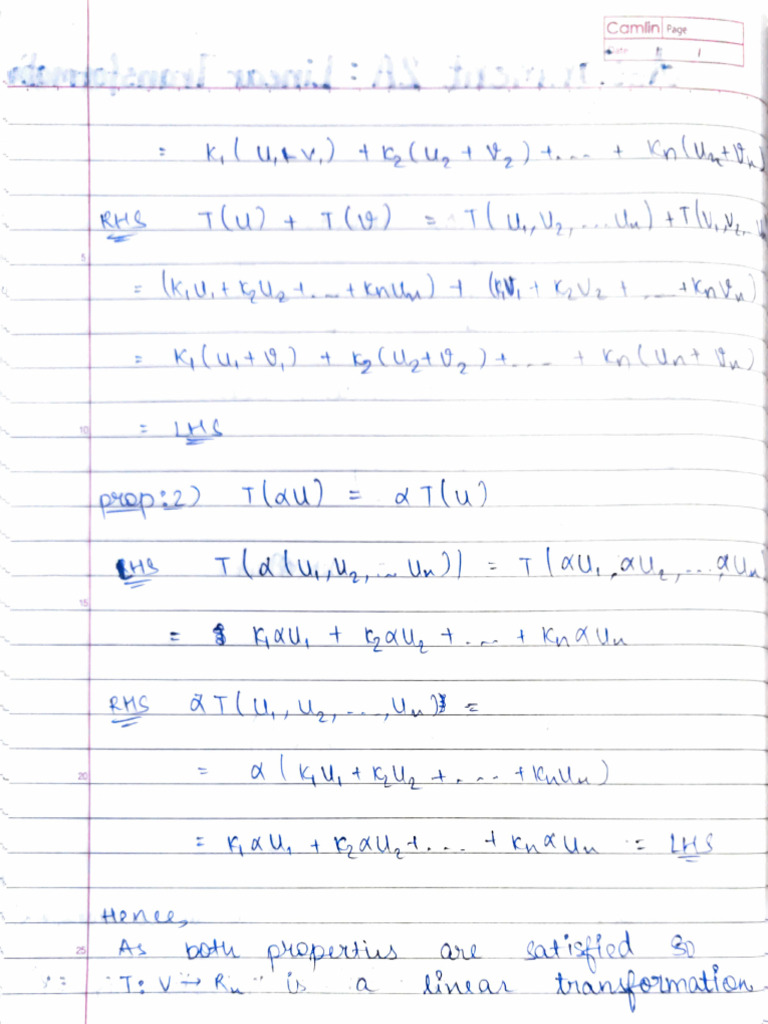 Camlin Page
Date / /
= K₁(U₁+V₁) + K₂(U₂+V₂)+.... + Kn(Un+Vn)
RHS T(U) + T(V) = T(U₁,U₂,...Un) + T(V₁,V₂,..
5
= (K₁U₁+K₂U₂+...+KnUn) + (K₁V₁+K₂V₂+....+KnVn)
= K₁(U₁+V₁) + K₂(U₂+V₂)+.... + Kn(Un+Vn)
10
= LHS
prop:2) T(αU) = αT(U)
LHS T(α(U₁,U₂,...Un)) = T(αU₁,αU₂,...,αUn
15
= K₁αU₁ + K₂αU₂ +.... + KnαUn
RHS αT(U₁,U₂,...,Un) =
20
= α(K₁U₁+K₂U₂+....+KnUn)
= K₁αU₁ + K₂αU₂+.... + KnαUn = LHS
Hence,
25
As both properties are satisfied so
T: V→Rn is a linear transformation